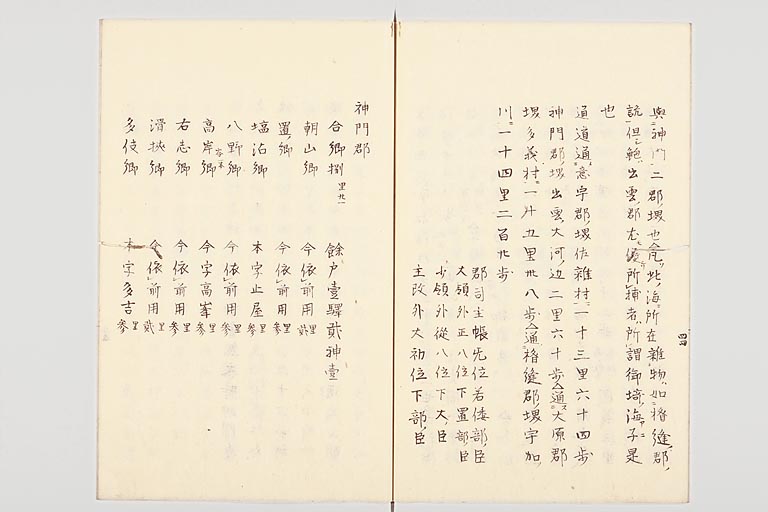 與神門二郡堺也凡北海所在雜物如楯縫郡
說但鮑出雲郡尤優所捕者所謂御埼海子是
也
通道通意宇郡堺佐雜村一十三里六十四步
神門郡堺出雲大河邊二里六十步通大原郡
堺多義村一十五里卅八步通楯縫郡堺宇加
川一十四里二百廿步
郡司主帳无位若倭部臣
大領外正八位下置部臣
少領外從八位下大臣
主政外大初位下部臣
神門郡
合鄉捌里廿一 餘戶壹驛貳神壹
朝山鄉 今依前用里貳
置鄉 今依前用里參
塩沾鄉 本字止屋里參
八野鄉 今依前用里參
高岸鄉 今字高峯里參
右志鄉 今依前用里參
滑挾鄉 今依前用里貳
多伎鄉 本字多吉里參